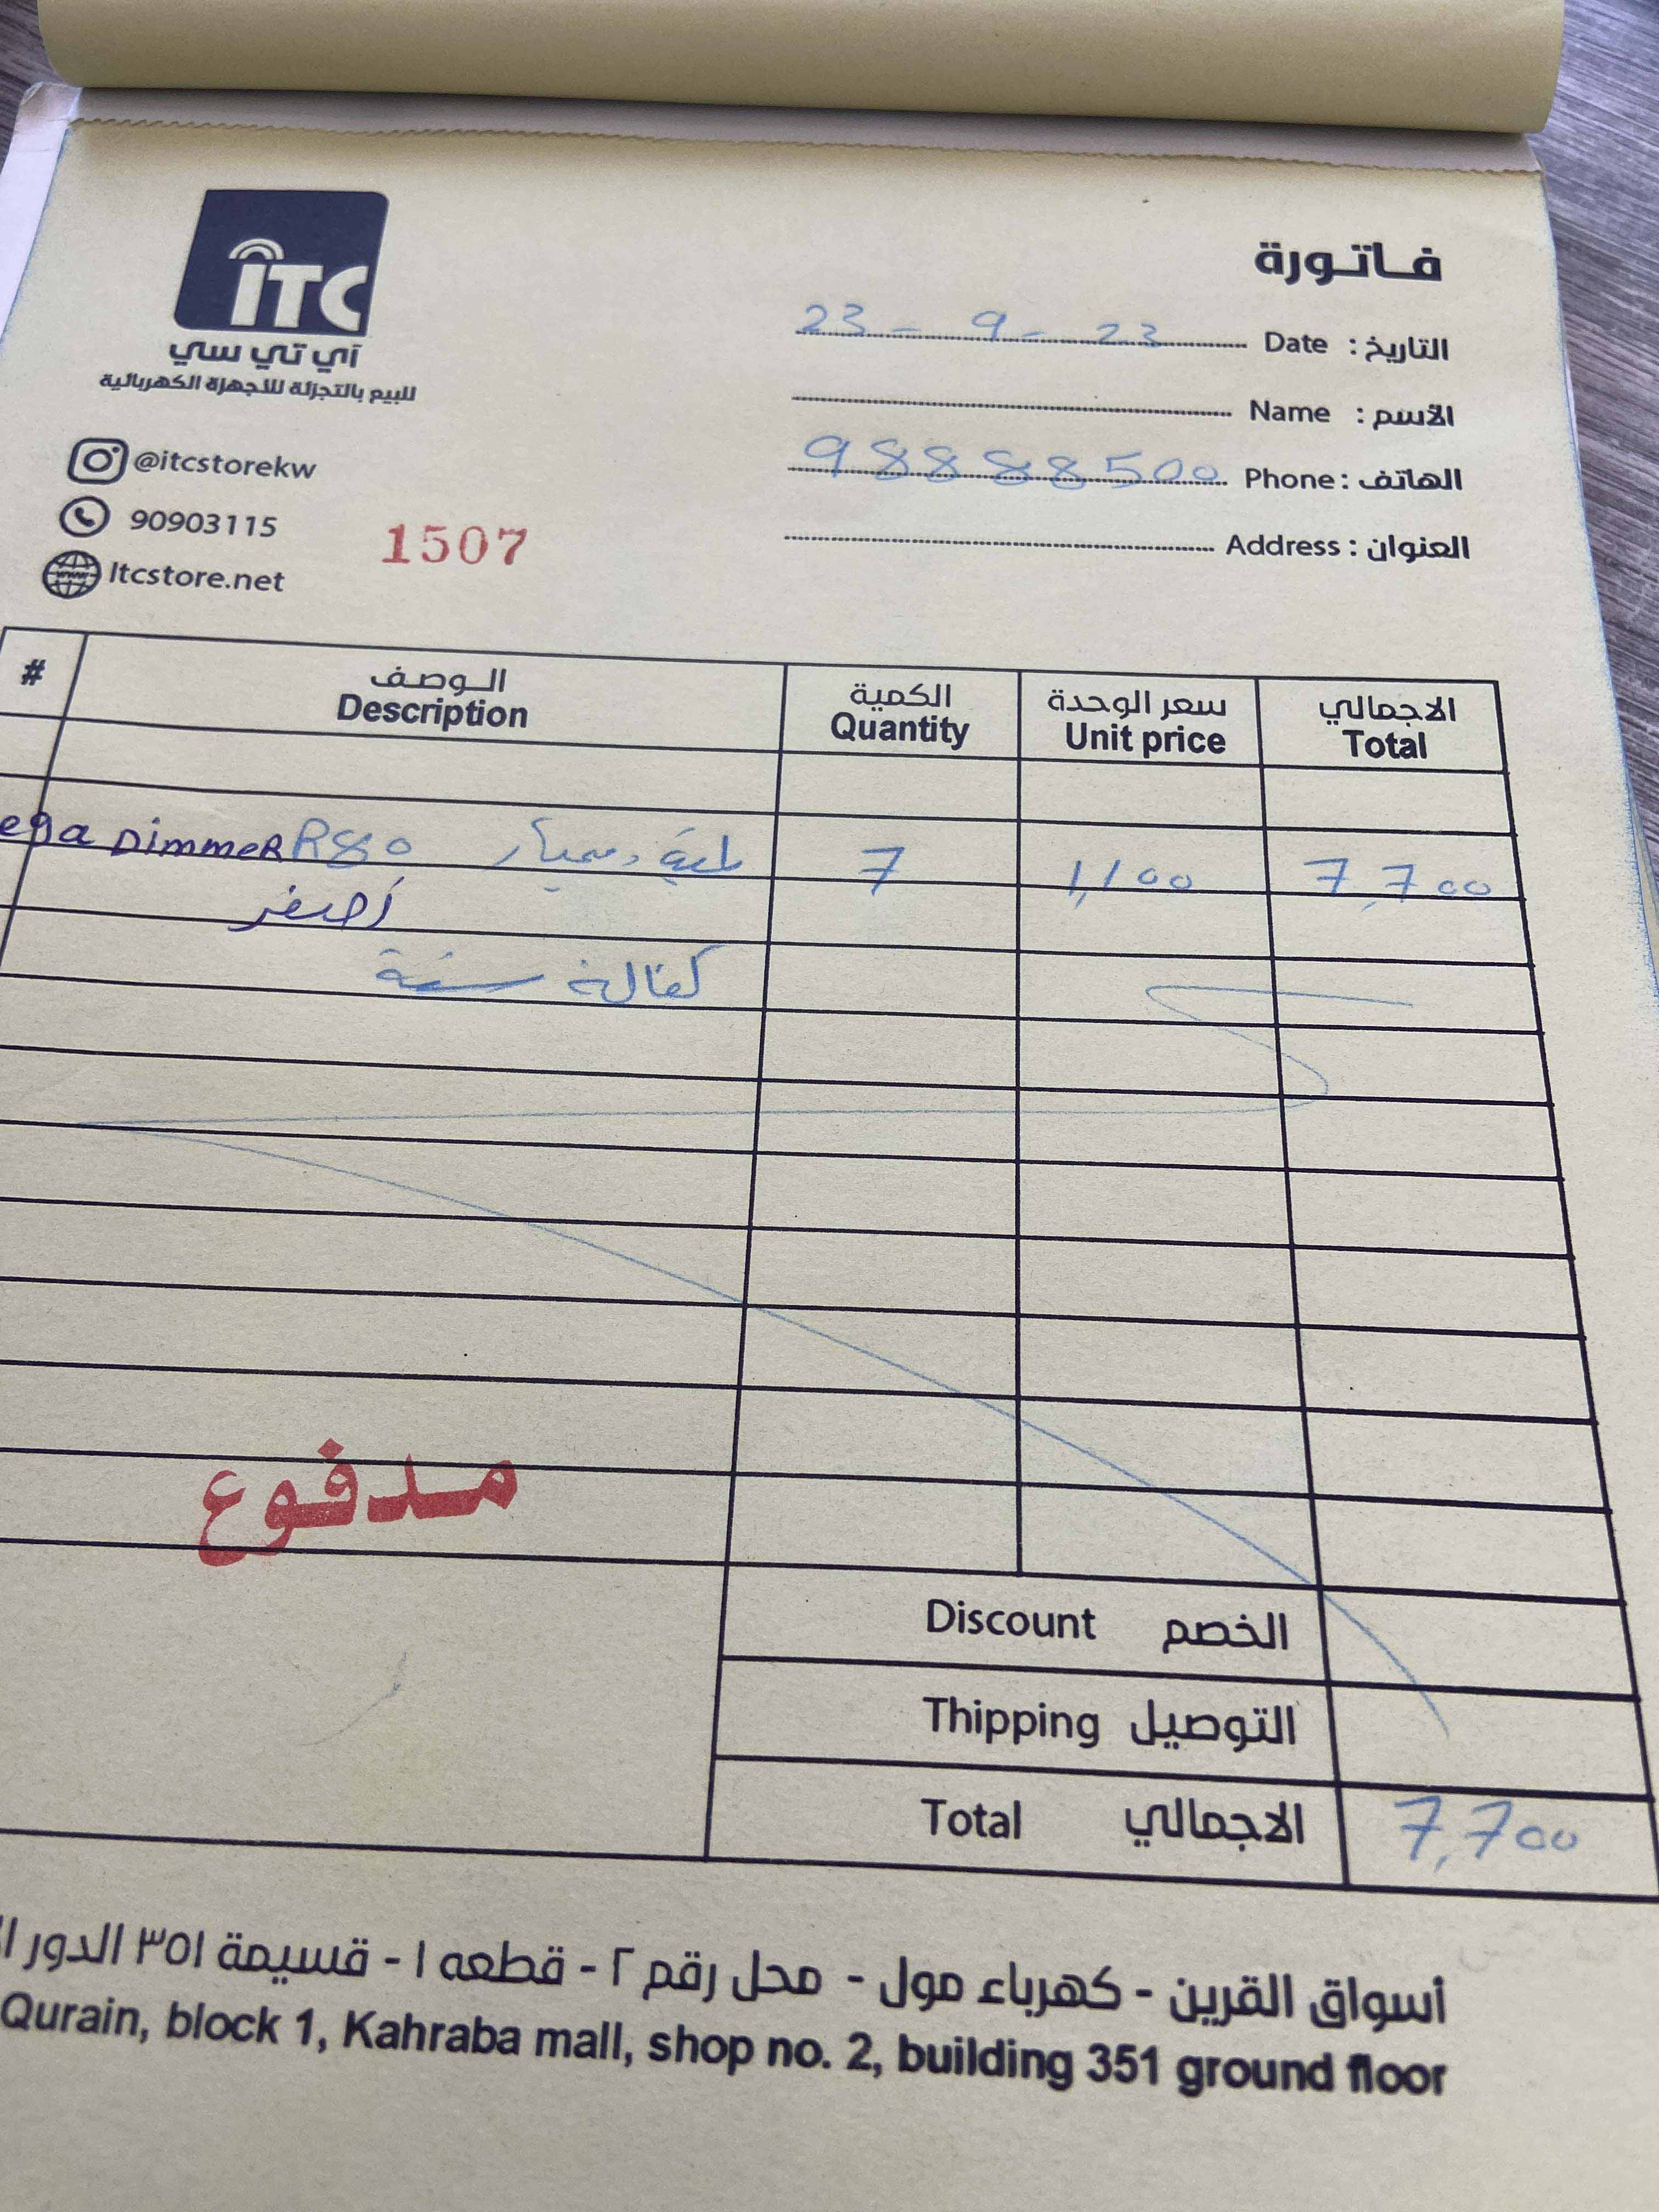 ITC
آي تي سي
للبيع بالتجزئة للأجهزة الكهربائية
@itcstorekw
90903115
Itcstore.net
1507
فاتورة
التاريخ : Date 23 - 9 - 23
الأسم : Name
الهاتف : Phone 98888500
العنوان : Address
# الوصف الكمية سعر الوحدة الاجمالي
Description Quantity Unit price Total
ega Dimmer R80 7 1,100 7,700
أصفر
كفالة سنة
مدفوع
Discount الخصم
Thipping التوصيل
Total الاجمالي 7,700
أسواق القرين - كهرباء مول - محل رقم ٢ - قطعه ١ - قسيمة ٣٥١ الدور
Qurain, block 1, Kahraba mall, shop no. 2, building 351 ground floor